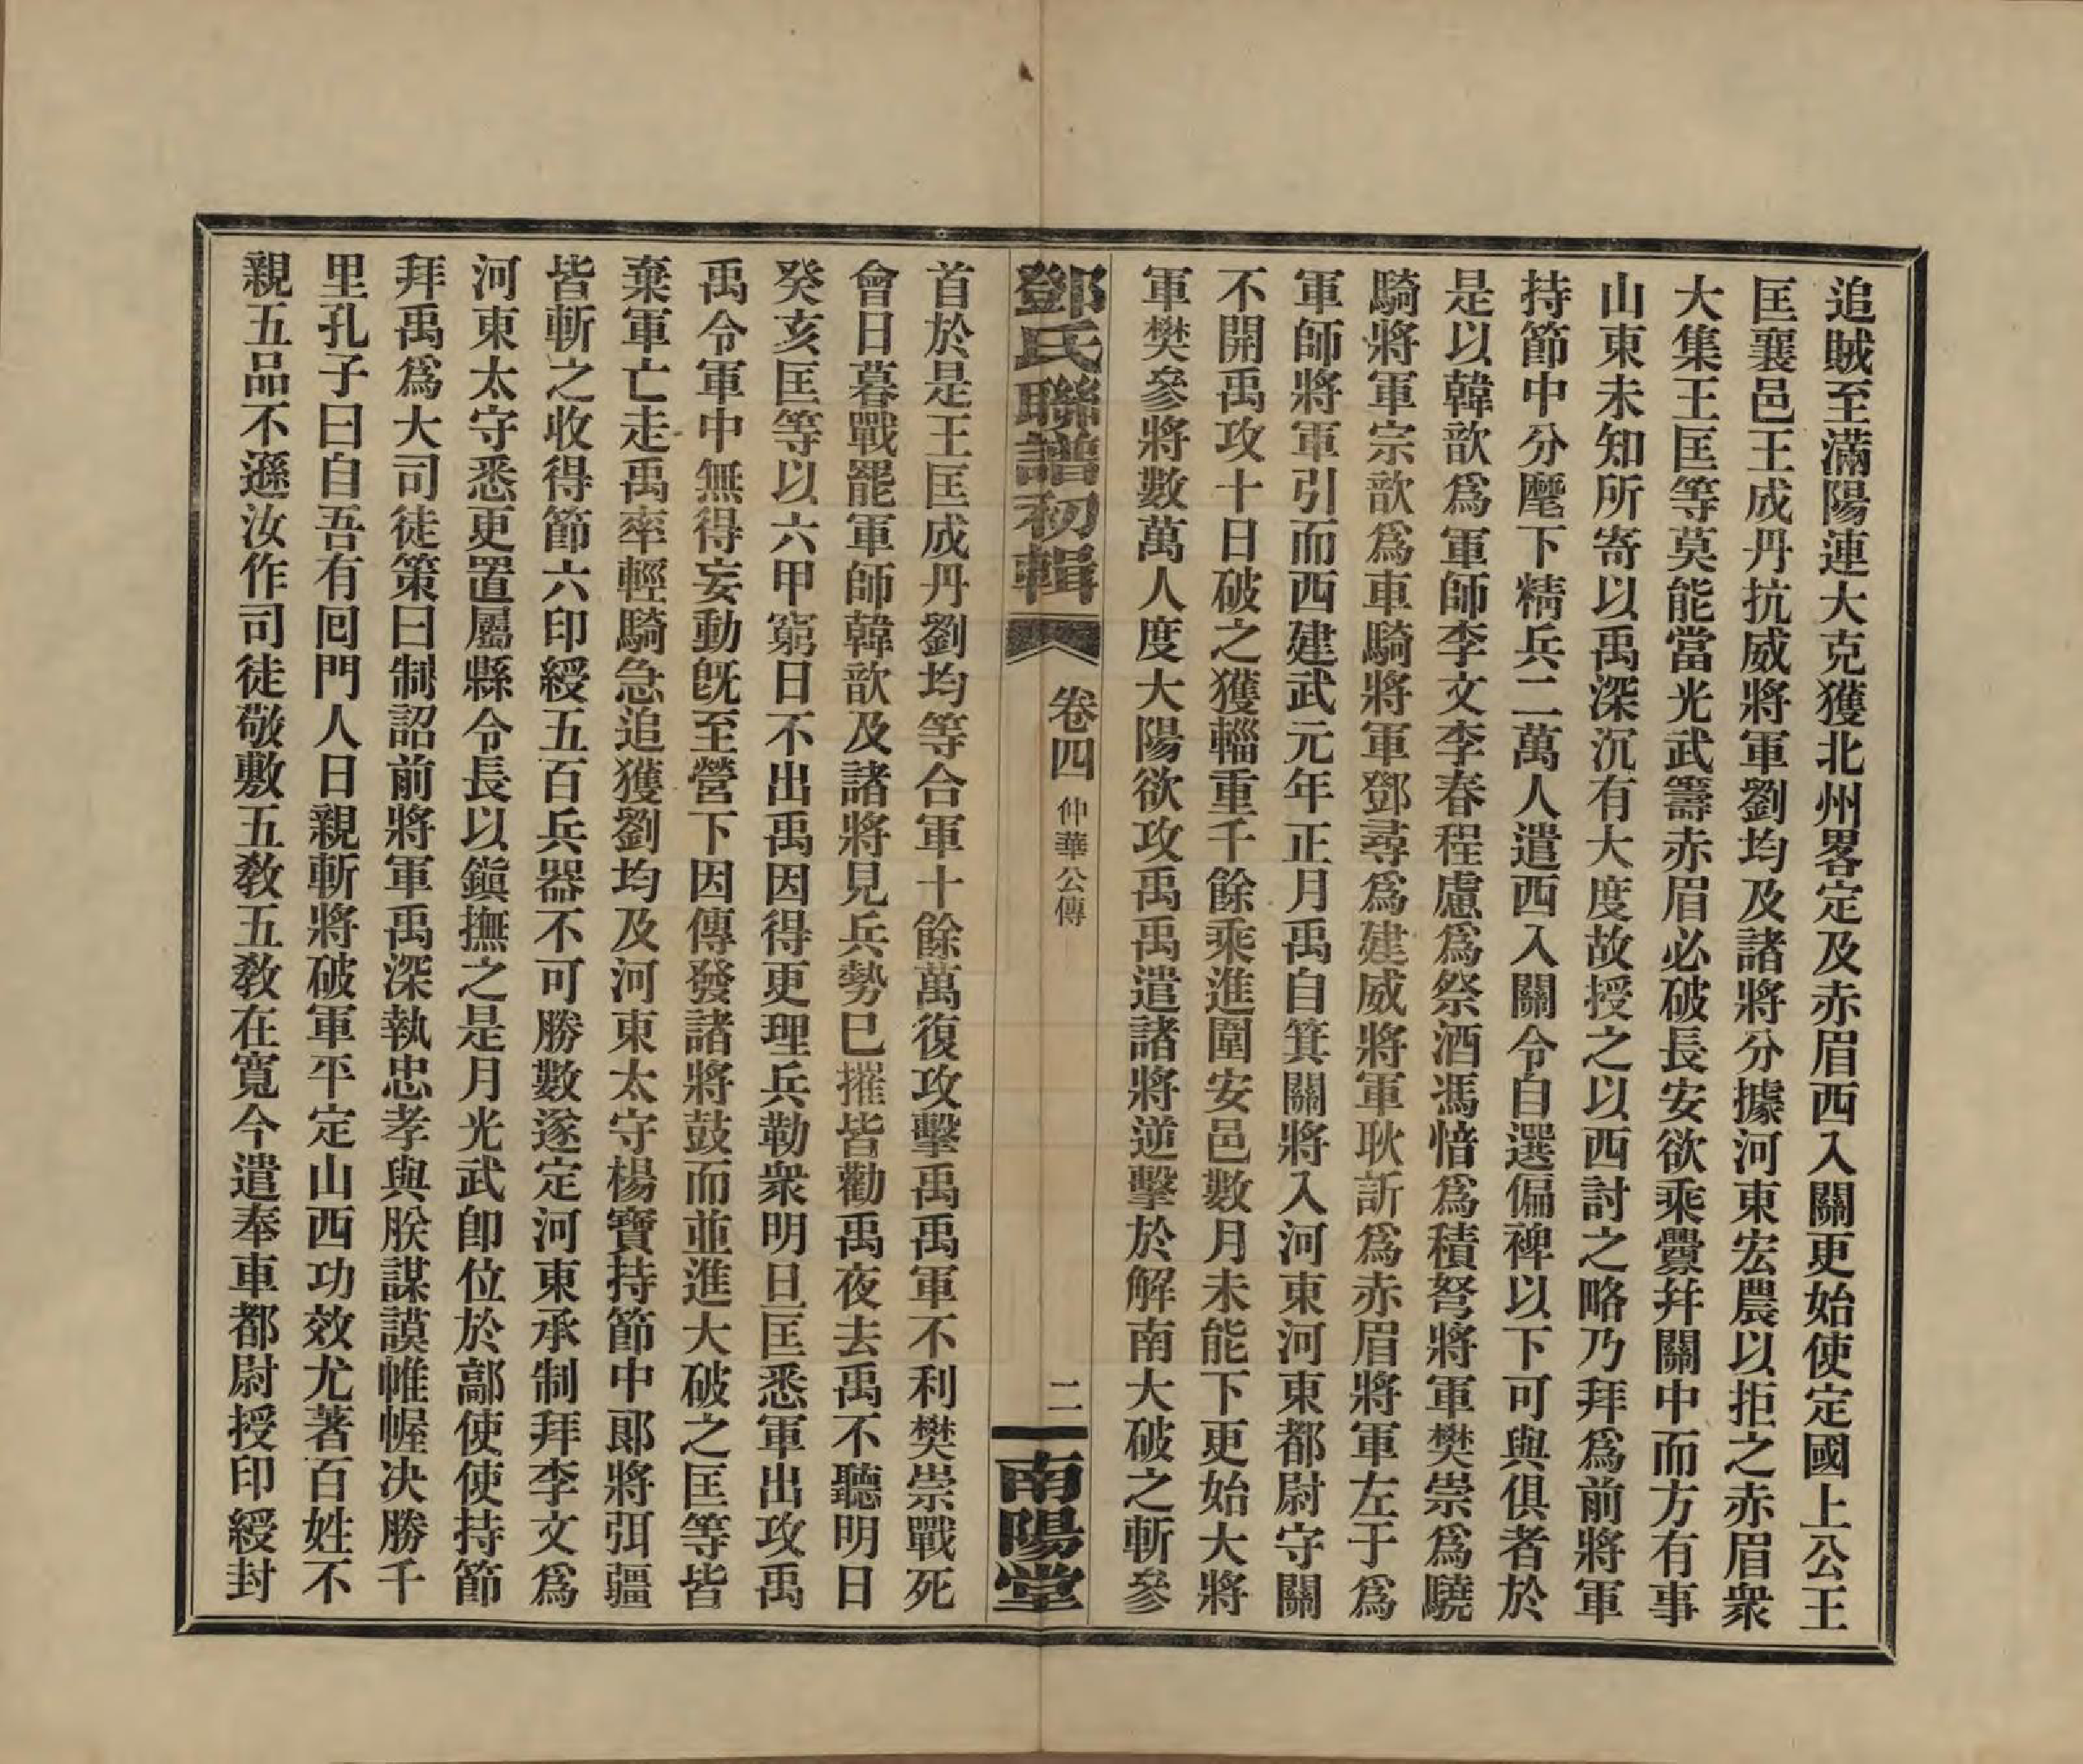 追賊至滿陽連大克獲北州畧定及赤眉西入關更始使定國上公王
匡襄邑王成丹抗威將軍劉均及諸將分據河東宏農以拒之赤眉衆
大集王匡等莫能當光武籌赤眉必破長安欲乘釁幷關中而方有事
山東未知所寄以禹深沉有大度故授之以西討之略乃拜爲前將軍
持節中分麾下精兵二萬人遣西入關令自選偏裨以下可與俱者於
是以韓歆爲軍師李文李春程慮爲祭酒馮愔爲積弩將軍樊崇爲驍
騎將軍宗歆爲車騎將軍鄧尋爲建威將軍耿訢爲赤眉將軍左于爲
軍師將軍引而西建武元年正月禹自箕關將入河東河東都尉守關
不開禹攻十日破之獲輜重千餘乘進圍安邑數月未能下更始大將
軍樊參將數萬人度大陽欲攻禹禹遣諸將逆擊於解南大破之斬參
鄧氏聯譜初輯
卷四 仲華公傳
二
南陽堂
首於是王匡成丹劉均等合軍十餘萬復攻擊禹禹軍不利樊崇戰死
會日暮戰罷軍師韓歆及諸將見兵勢已摧皆勸禹夜去禹不聽明日
癸亥匡等以六甲窮日不出禹因得更理兵勒衆明日匡悉軍出攻禹
禹令軍中無得妄動旣至營下因傳發諸將鼓而並進大破之匡等皆
棄軍亡走禹率輕騎急追獲劉均及河東太守楊寶持節中郎將弭疆
皆斬之收得節六印綬五百兵器不可勝數遂定河東承制拜李文爲
河東太守悉更置屬縣令長以鎭撫之是月光武卽位於鄗使使持節
拜禹爲大司徒策曰制詔前將軍禹深執忠孝與朕謀謨帷幄决勝千
里孔子曰自吾有囘門人日親斬將破軍平定山西功效尤著百姓不
親五品不遜汝作司徒敬敷五敎五敎在寬今遣奉車都尉授印綬封